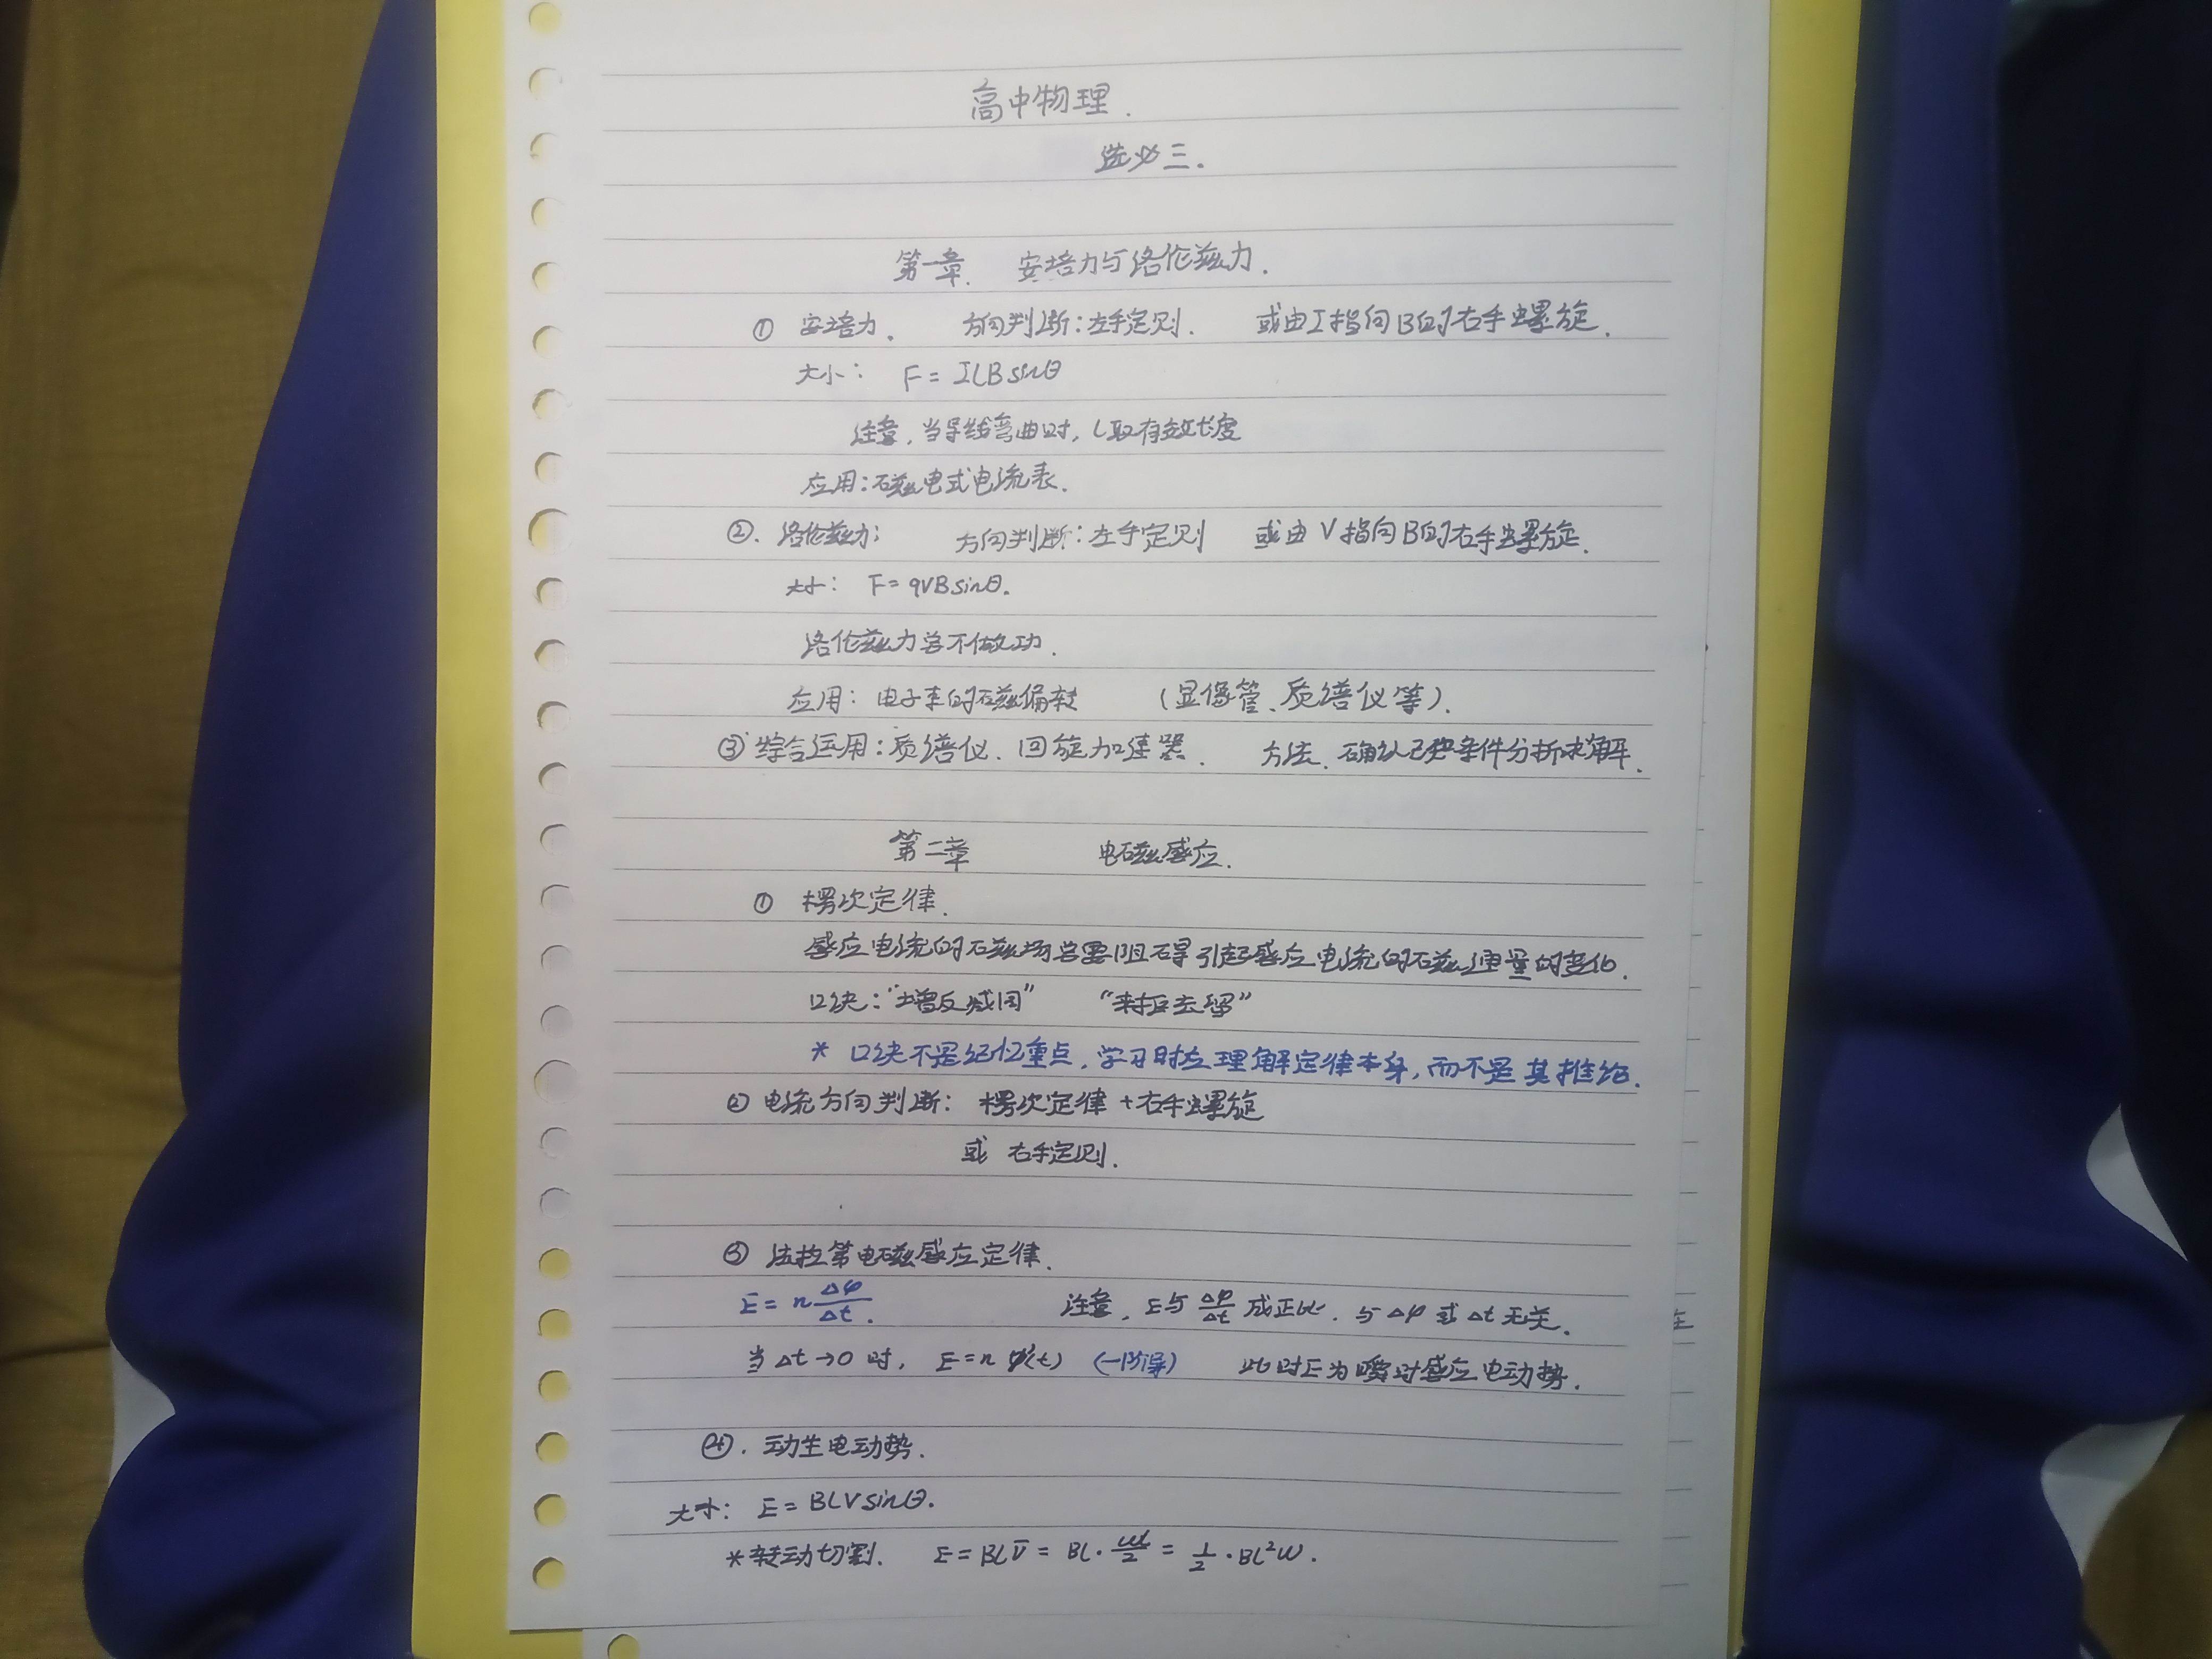 高中物理.
选必三.
第一章. 安培力与洛伦兹力.
① 安培力. 方向判断:左手定则. 或由I指向B的右手螺旋.
大小: F = ILBsinθ
注意,当导线弯曲时, L取有效长度
应用:磁电式电流表.
②. 洛伦兹力: 方向判断:左手定则 或由V指向B的右手螺旋.
大小: F = qVBsinθ.
洛伦兹力总不做功.
应用: 电子束的磁偏转 (显像管、质谱仪等).
③ 综合运用:质谱仪、回旋加速器. 方法、确认已知条件分析求解.
第二章 电磁感应.
① 楞次定律.
感应电流的磁场总要阻碍引起感应电流的磁通量的变化.
口诀:“增反减同” “来拒去留”
* 口诀不是记忆重点,学习时应理解定律本身,而不是其推论.
② 电流方向判断: 楞次定律+右手螺旋
或 右手定则.
③ 法拉第电磁感应定律.
E = n Δφ/Δt. 注意, E与 Δφ/Δt 成正比. 与Δφ或Δt无关.
在
当Δt→0时, E = n φ'(t) (一阶导) 此时E为瞬时感应电动势.
④. 动生电动势.
大小: E = BLVsinθ.
*转动切割. E = BLV̄ = BL·ωL/2 = 1/2·BL²ω.